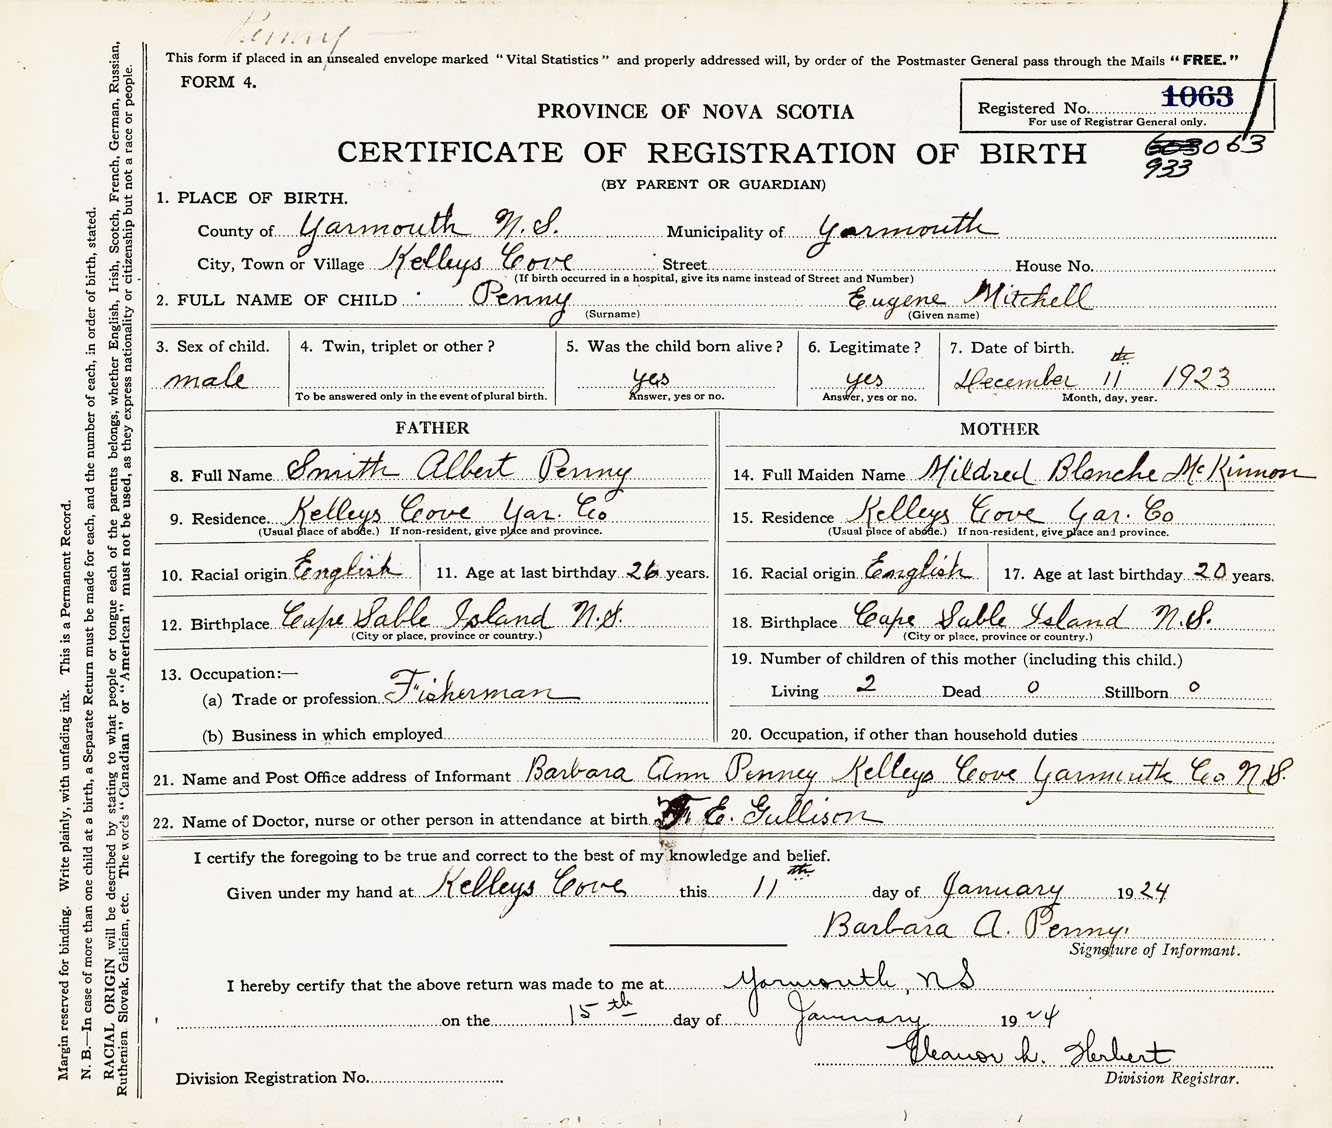 Penny
This form if placed in an unsealed envelope marked "Vital Statistics" and properly addressed will, by order of the Postmaster General pass through the Mails "FREE."
FORM 4.
PROVINCE OF NOVA SCOTIA
Registered No. 1063
For use of Registrar General only.
CERTIFICATE OF REGISTRATION OF BIRTH
603063
933
(BY PARENT OR GUARDIAN)
1. PLACE OF BIRTH.
County of Yarmouth N.S. Municipality of Yarmouth
City, Town or Village Kelleys Cove Street House No.
(If birth occurred in a hospital, give its name instead of Street and Number)
2. FULL NAME OF CHILD Penny Eugene Mitchell
(Surname) (Given name)
3. Sex of child. 4. Twin, triplet or other? 5. Was the child born alive? 6. Legitimate? 7. Date of birth.
male yes yes December 11th 1923
To be answered only in the event of plural birth. Answer, yes or no. Answer, yes or no. Month, day, year.
FATHER MOTHER
8. Full Name Smith Albert Penny 14. Full Maiden Name Mildred Blanche McKinnon
9. Residence Kelleys Cove Yar. Co 15. Residence Kelleys Cove Yar. Co
(Usual place of abode.) If non-resident, give place and province. (Usual place of abode.) If non-resident, give place and province.
10. Racial origin English 11. Age at last birthday 26 years. 16. Racial origin English 17. Age at last birthday 20 years.
12. Birthplace Cape Sable Island N.S. 18. Birthplace Cape Sable Island N.S.
(City or place, province or country.) (City or place, province or country.)
13. Occupation:— 19. Number of children of this mother (including this child.)
(a) Trade or profession Fisherman Living 2 Dead 0 Stillborn 0
(b) Business in which employed 20. Occupation, if other than household duties
21. Name and Post Office address of Informant Barbara Ann Penney Kelleys Cove Yarmouth Co N.S.
22. Name of Doctor, nurse or other person in attendance at birth F. E. Gullison
I certify the foregoing to be true and correct to the best of my knowledge and belief.
Given under my hand at Kelleys Cove this 11th day of January 1924
Barbara A. Penny.
Signature of Informant.
I hereby certify that the above return was made to me at Yarmouth, NS
on the 15th day of January 1924
Eleanor L. Herbert
Division Registration No. Division Registrar.
Margin reserved for binding. Write plainly, with unfading ink. This is a Permanent Record.
N. B.—In case of more than one child at a birth, a Separate Return must be made for each, and the number of each, in order of birth, stated.
RACIAL ORIGIN will be described by stating to what people or tongue each of the parents belongs; whether English, Irish, Scotch, French, German, Russian,
Ruthenian, Slovak, Galician, etc. The words "Canadian" or "American" must not be used, as they express nationality or citizenship but not a race or people.